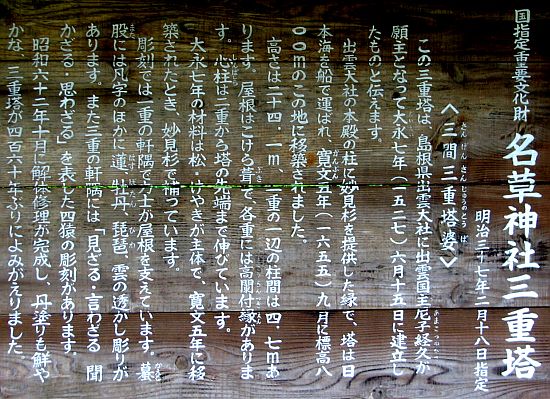 国指定重要文化財
名草神社三重塔
明治三十七年二月十八日指定
＜三間三重塔婆＞
さんげんさんじゅうのとうば
この三重塔は、島根県出雲大社に出雲国主尼子経久が
願主となって大永七年（一五二七）六月十五日に建立し
たものと伝えます。
出雲大社の本殿の柱に妙見杉を提供した縁で、塔は日
本海を船で運ばれ、寛文五年（一六五五）九月に標高八
〇〇mのこの地に移築されました。
高さは二十四・一m、一重の一辺の柱間は四・七mあ
ります。屋根はこけら葺で、各重には高閣付縁がありま
す。心柱は二重から塔の先端まで伸びています。
大永七年の材料は松・けやきが主体で、寛文五年に移
築されたとき、妙見杉で補っています。
彫刻では一重の軒隅で力士が屋根を支えています。墓
股には凡字のほかに蓮、牡丹、琵琶、雲の透かし彫りが
あります。また三重の軒隅には「見ざる・言わざる 聞
かざる・思わざる」を表した四猿の彫刻があります。
昭和六十二年十月に解体修理が完成し、丹塗りも鮮や
かな、三重塔が四百六十年ぶりによみがえりました。